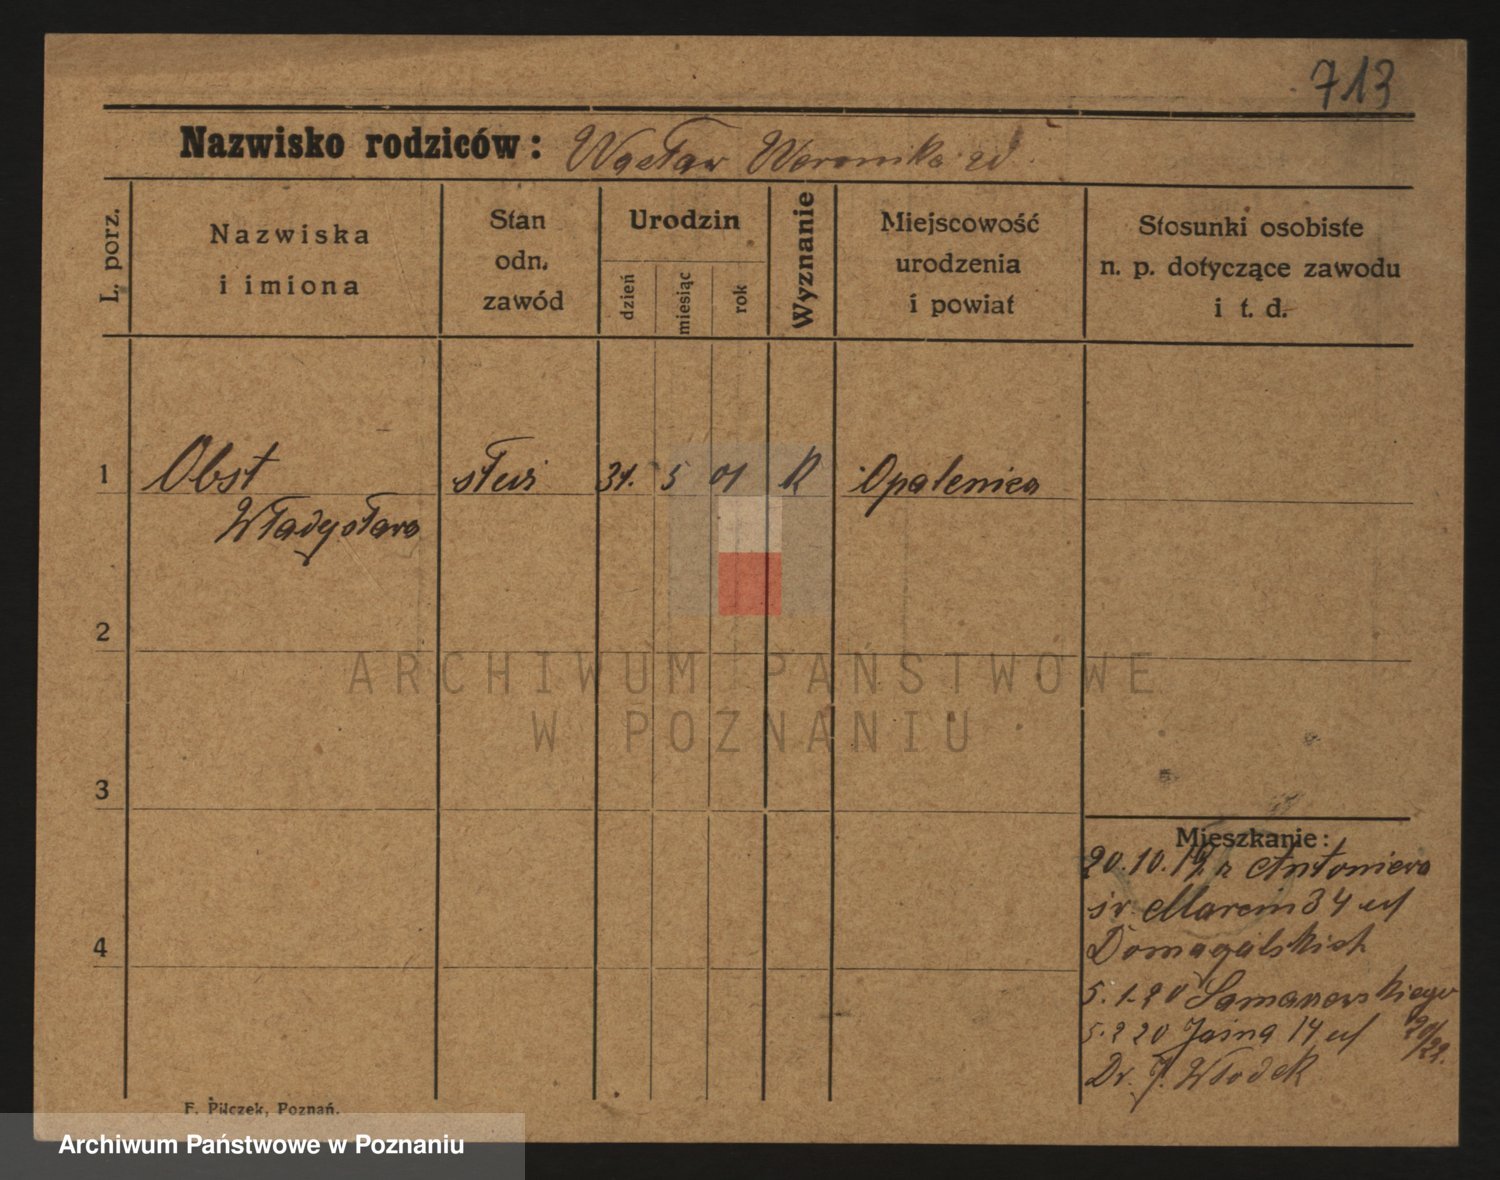 713
Nazwisko rodziców: Wacław Weronika zd.
L. porz.
Nazwiska
i imiona
Stan
odn.
zawód
Urodzin
dzień
miesiąc
rok
Wyznanie
Miejscowość
urodzenia
i powiat
Stosunki osobiste
n. p. dotyczące zawodu
i t. d.
1 Obst służ 31. 5 01 K Opalenica
Władysława
2
ARCHIWUM PAŃSTWOWE
W POZNANIU
3
4
Mieszkanie:
20.10.19 z Antoniewa
św. Marcin 34 u/
Domagalskich
5.1.20
5.2 20 Jasna 14 u/ 20/22.
Dr. J. Włodek
F. Pilczek, Poznań.
Archiwum Państwowe w Poznaniu